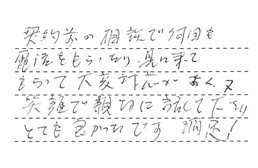 契約前の相談で何回も
電話をもらったり、見に来て
もらって大変対応が良く、又
笑顔で親切に話して下さり
とても良かったです 満足!